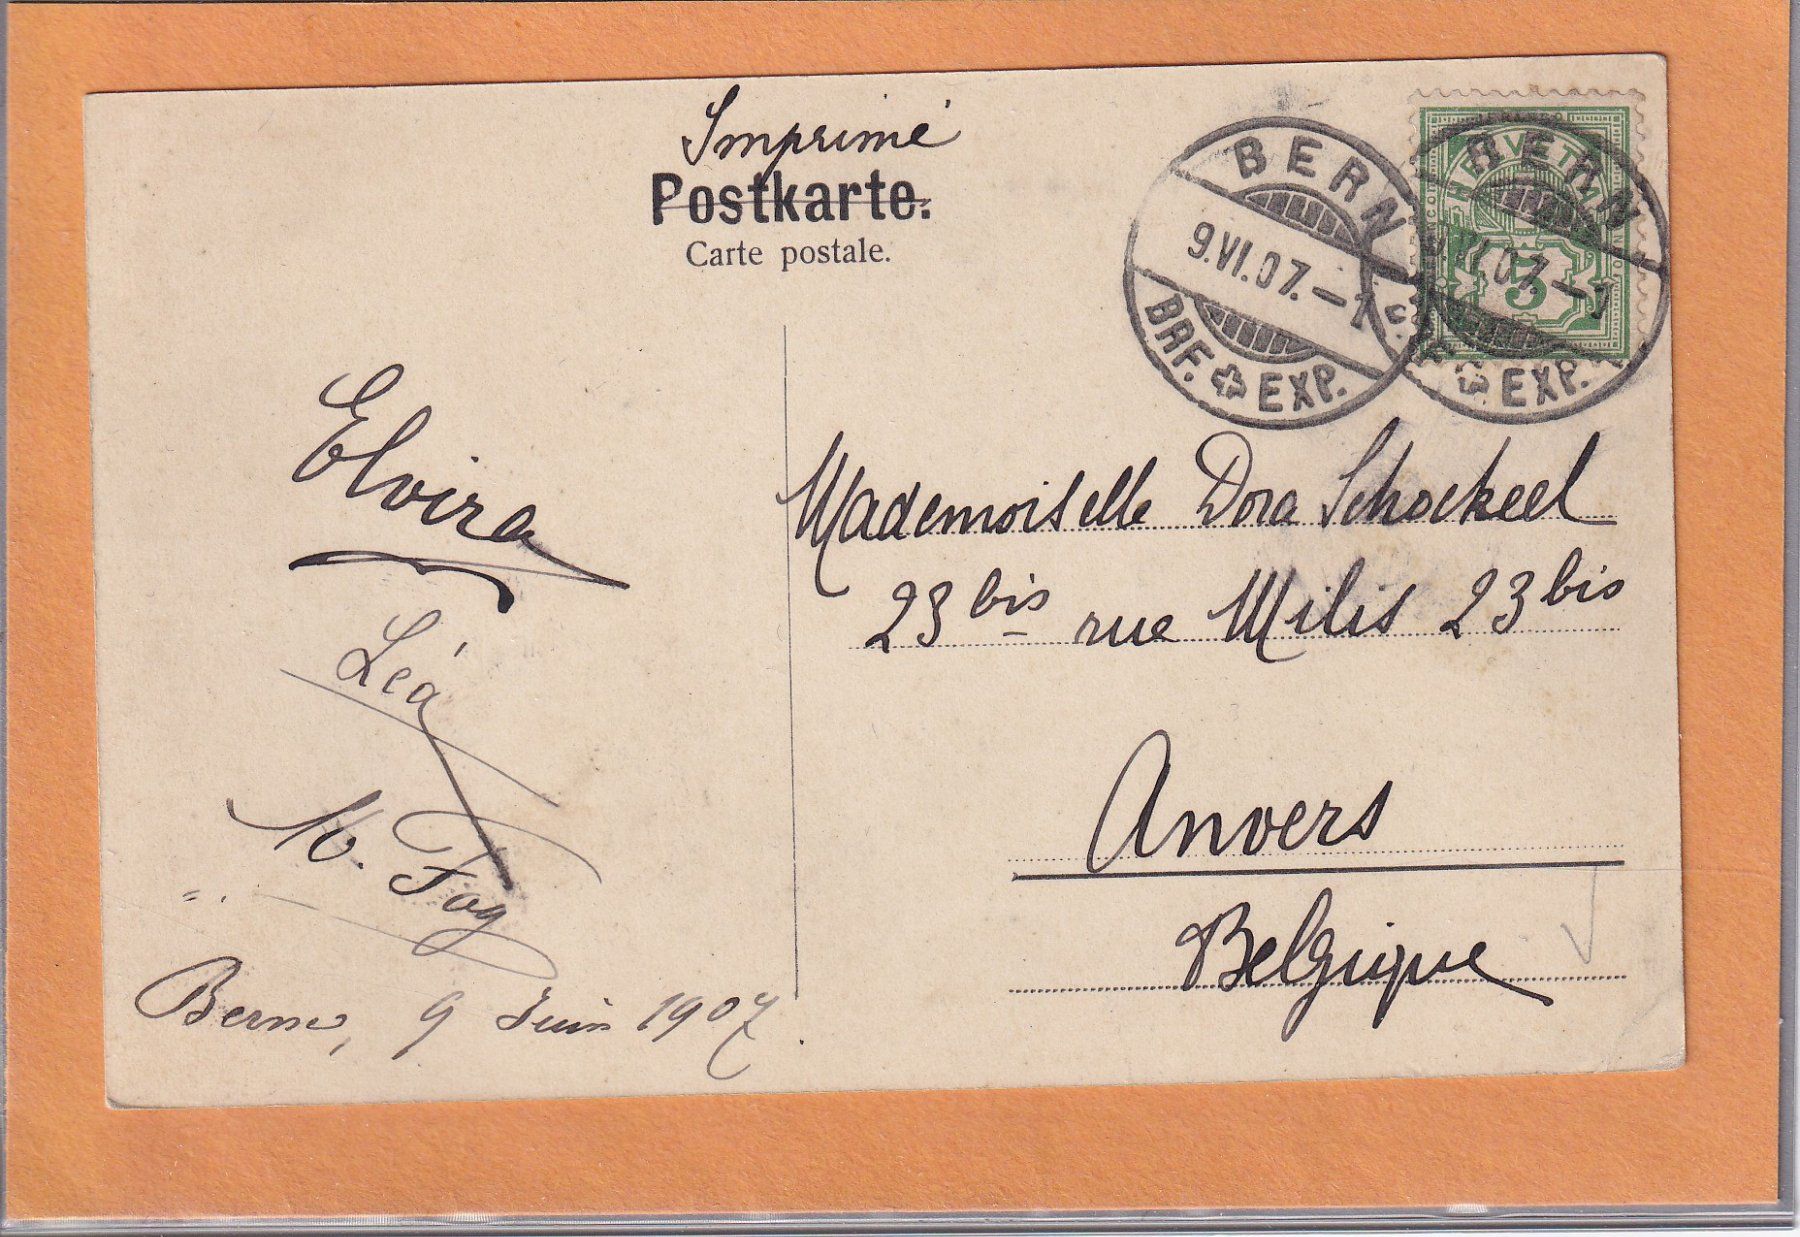 Imprimé
Postkarte.
Carte postale.
BERN
9.VI.07.–1
BRF. EXP.
BERN
VI.07.–1
EXP.
HELVETIA
5
Elvira
Léa
Mademoiselle Dora Schockeel
23 bis rue Milis 23 bis
Anvers
Belgique
Berne, 9 Juin 1907.